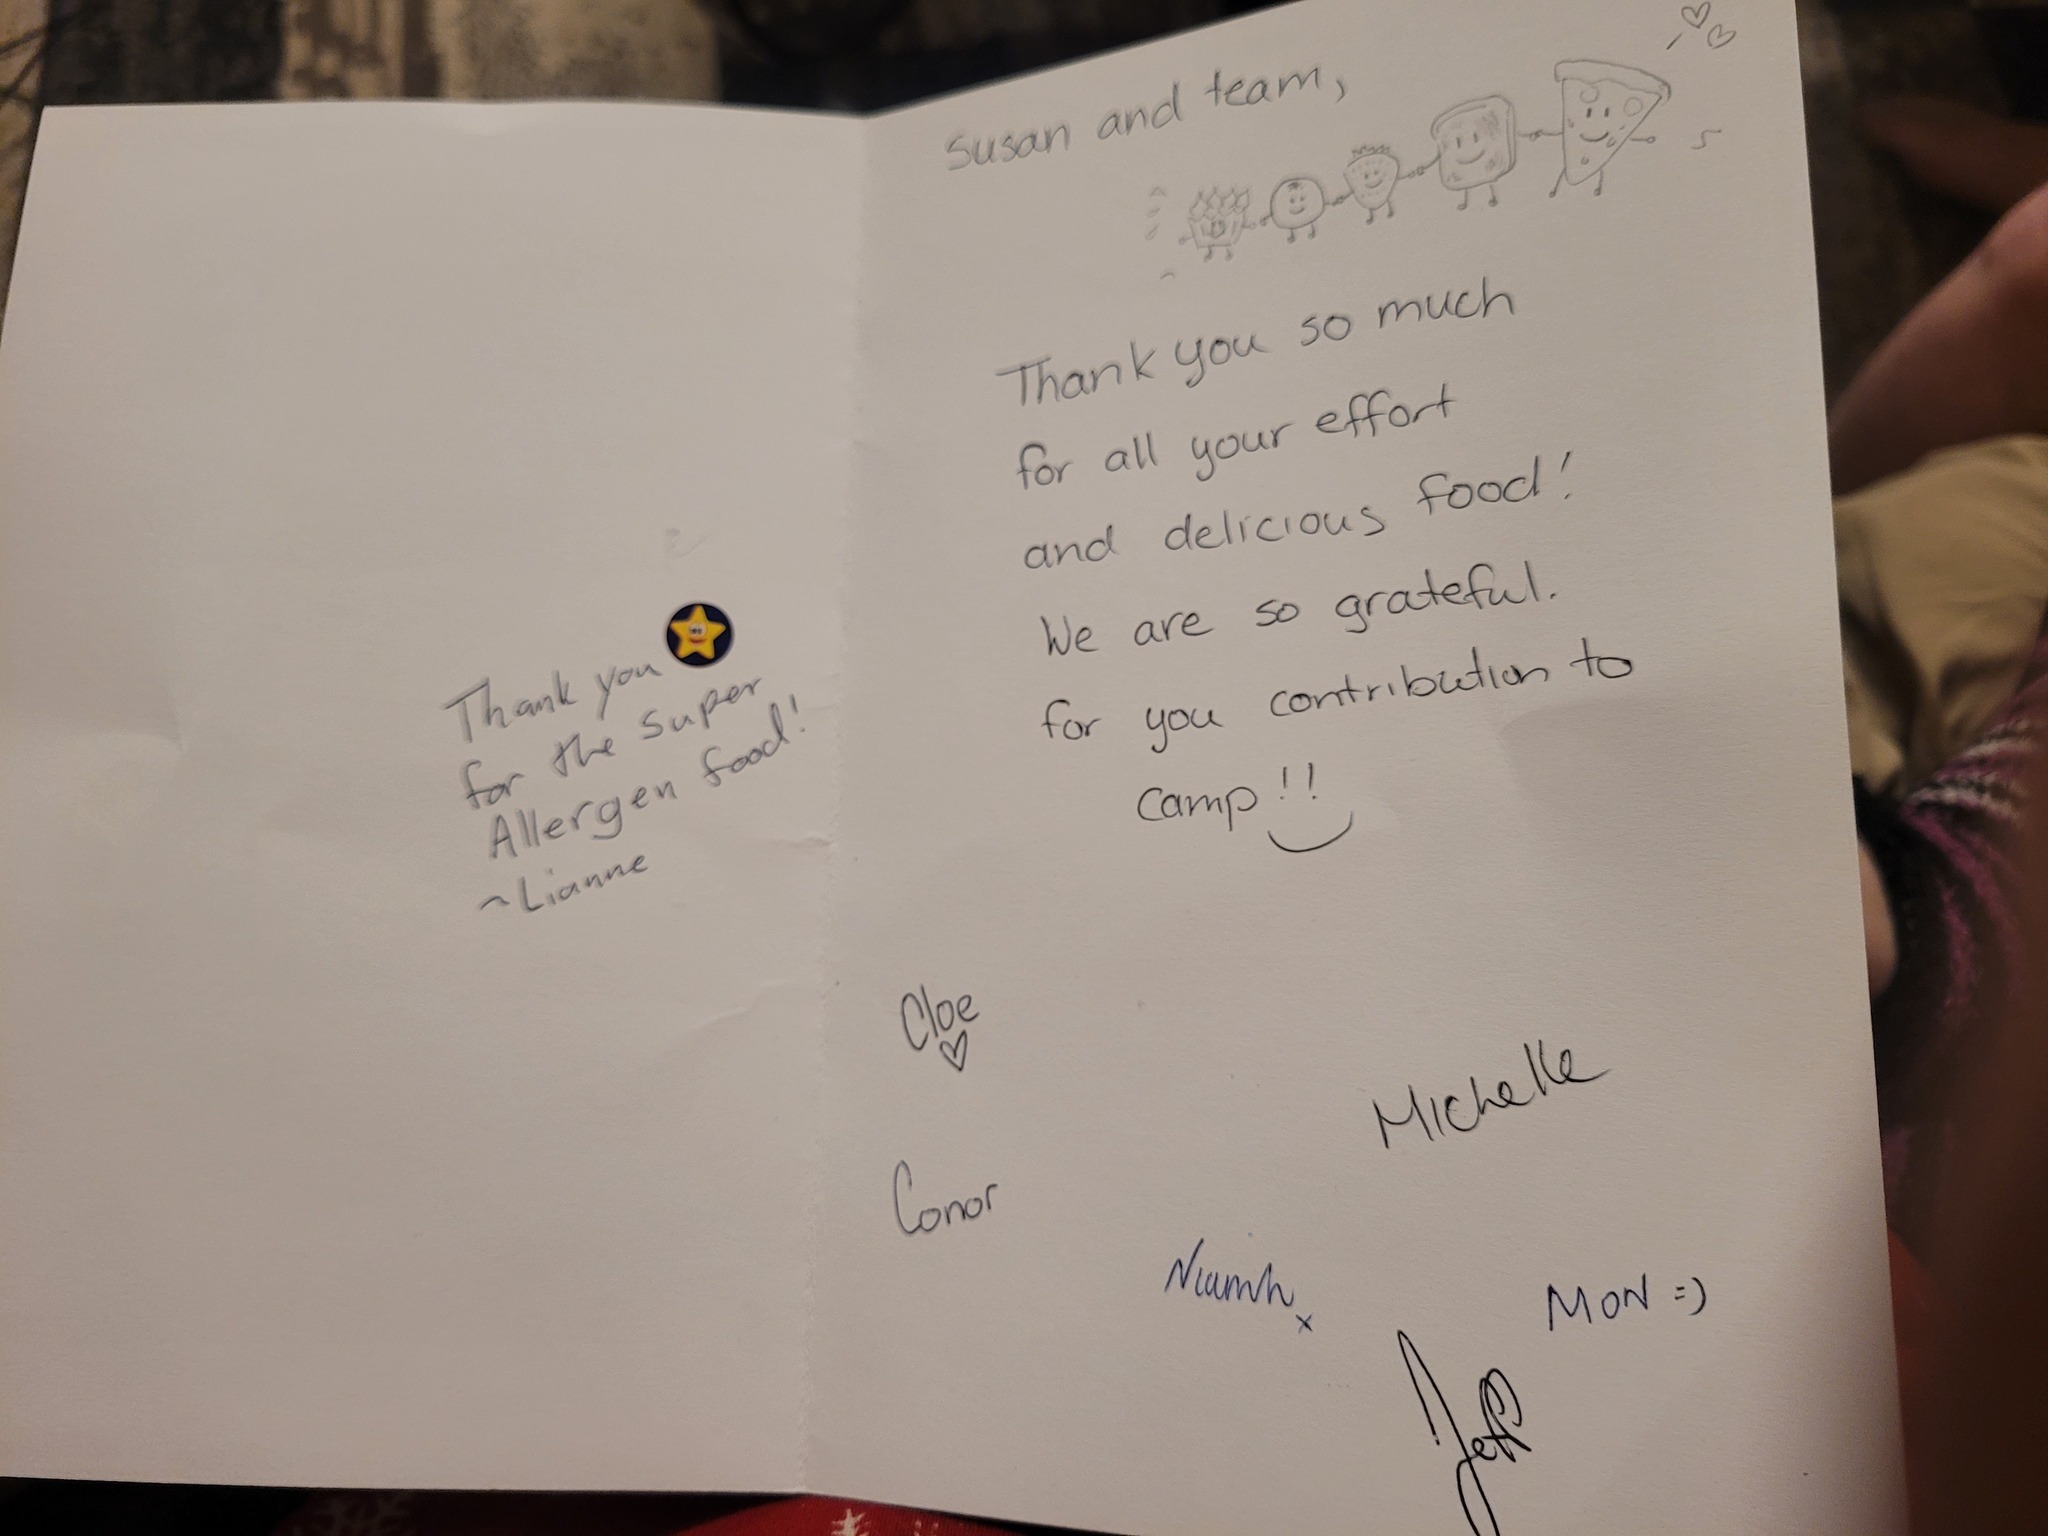 Thank you
for the super
Allergen food!
~Lianne
Susan and team,
Thank you so much
for all your effort
and delicious food!
We are so grateful.
for you contribution to
camp!!
Cloe
Michelle
Conor
Niamh x
MON =)
Jeff